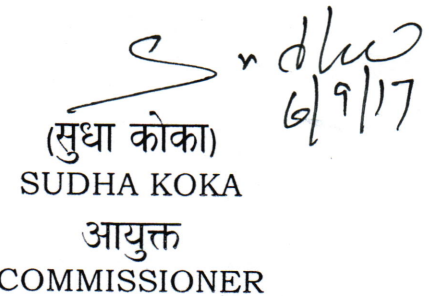 Sudha
6/9/17
(सुधा कोका)
SUDHA KOKA
आयुक्त
COMMISSIONER